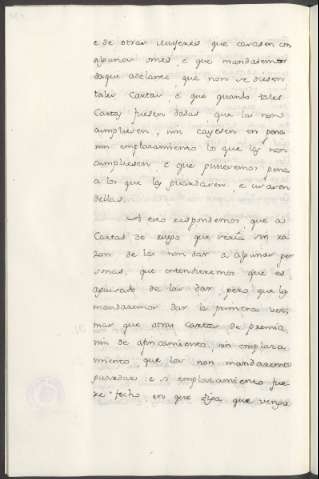 e de otras mugeres que casasen con
algunos omes e que mandasemos
daqui adelante que non se diesen
tales Cartas é que quando tales
Cartas fuesen dadas que las non
cumpliesen, nin cayesen en pena
nin emplazamiento los que las non
cumpliesen é que pusiesemos pena
a los que las guardaren e usaren
dellas.
A esto respondemos que a
Cartas de ruego que veria en ra
zon de las non dar a algunas per
sonas, que entenderemos que es
aguisado de las dar, pero que las
mandaremos dar la primera vez,
mas que otras cartas de premia,
nin de afincamiento, nin emplaza
miento que las non mandaremos
guardar e si emplazamiento fue
re fecho, en que diga que venga